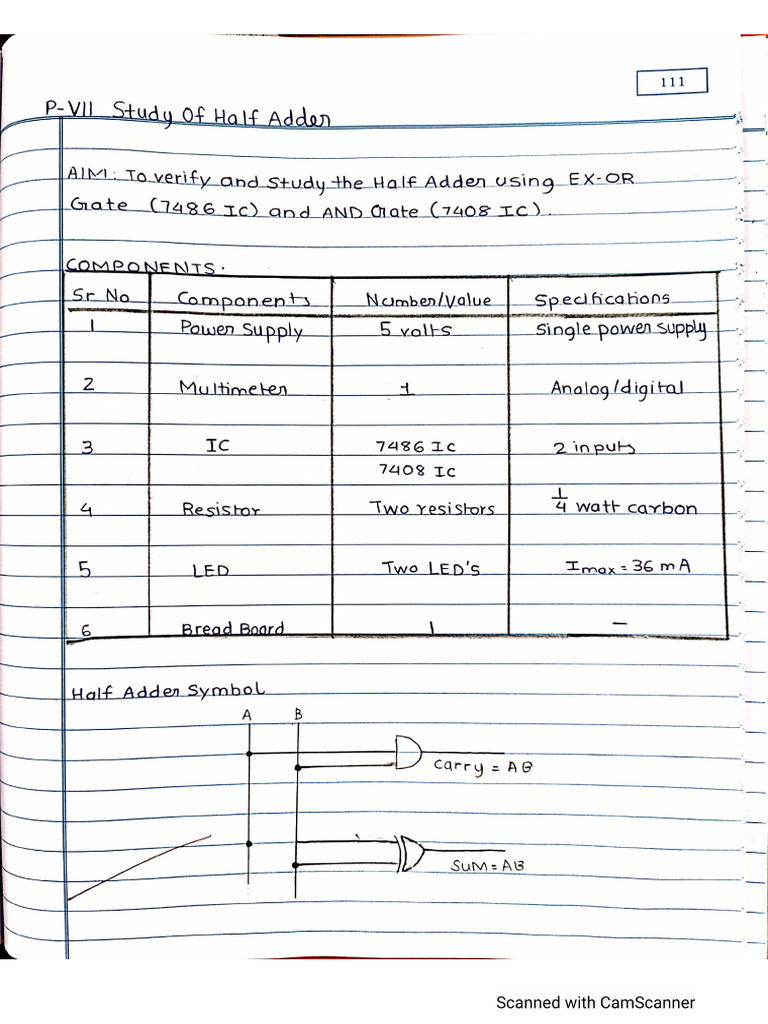 111
P-VII Study Of Half Adder
AIM: To verify and study the Half Adder using EX-OR
Gate (7486 IC) and AND Gate (7408 IC).
COMPONENTS.
Sr No Components Number/Value Specifications
1 Power Supply 5 volts Single power supply
2 Multimeter 1 Analog/digital
3 IC 7486 IC 2 inputs
7408 IC
4 Resistor Two resistors 1/4 watt carbon
5 LED Two LED's Imax = 36 mA
6 Bread Board 1 —
Half Adder Symbol
A B
Carry = AB
SUM = AB
Scanned with CamScanner